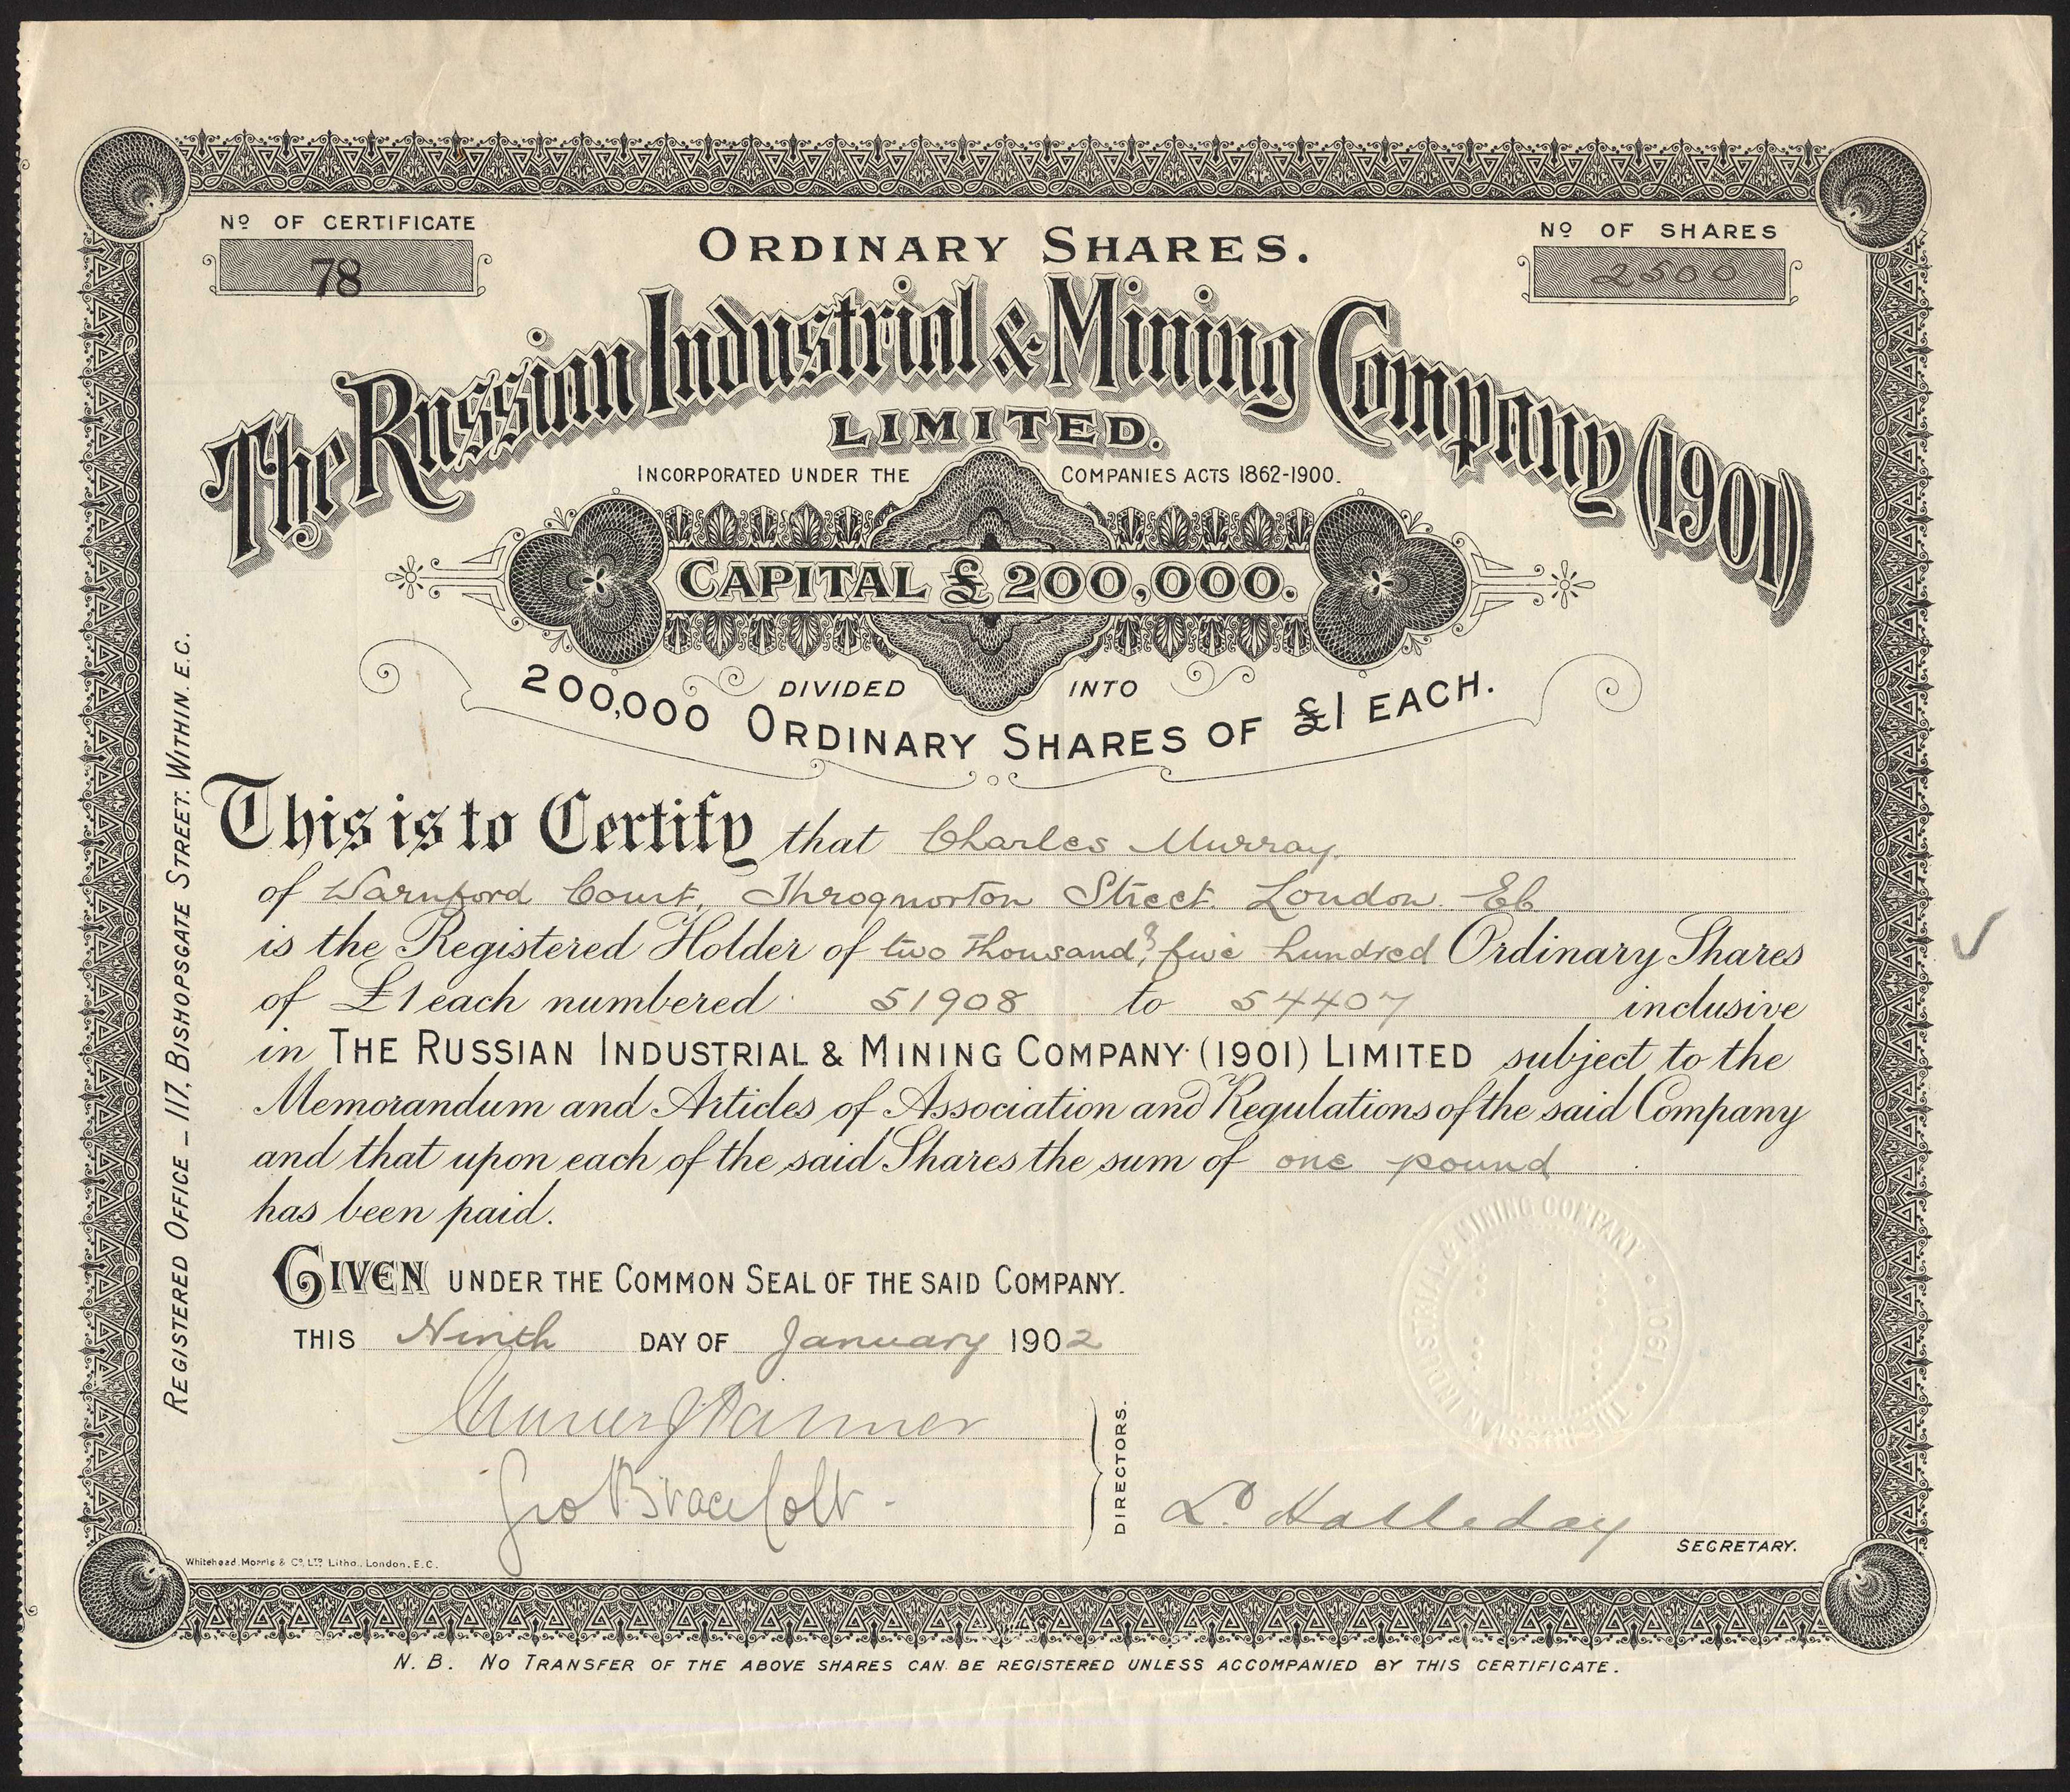 Nº OF CERTIFICATE
78
ORDINARY SHARES.
Nº OF SHARES
2500
The Russian Industrial & Mining Company (1901)
LIMITED.
INCORPORATED UNDER THE COMPANIES ACTS 1862-1900.
CAPITAL £200,000.
DIVIDED INTO
200,000 ORDINARY SHARES OF £1 EACH.
REGISTERED OFFICE – 117, BISHOPSGATE STREET. WITHIN. E.C.
This is to Certify that Charles Murray.
of Warnford Court, Throgmorton Street. London. EC
is the Registered Holder of two thousand & five hundred Ordinary Shares
of £1 each numbered 51908 to 54407 inclusive
in THE RUSSIAN INDUSTRIAL & MINING COMPANY (1901) LIMITED subject to the
Memorandum and Articles of Association and Regulations of the said Company
and that upon each of the said Shares the sum of one pound
has been paid.
THE RUSSIAN INDUSTRIAL & MINING COMPANY · 1901 ·
GIVEN UNDER THE COMMON SEAL OF THE SAID COMPANY.
THIS Ninth DAY OF January 1902
Geo Brace Colt
DIRECTORS.
L. Halleday
SECRETARY.
Whitehead, Morris & Cº LTD Litho., London, E.C.
N.B. NO TRANSFER OF THE ABOVE SHARES CAN BE REGISTERED UNLESS ACCOMPANIED BY THIS CERTIFICATE.